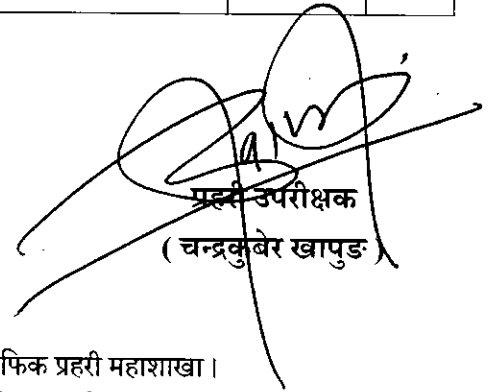 प्रहरी उपरीक्षक
( चन्द्रकुबेर खापुङ )
फिक प्रहरी महाशाखा।